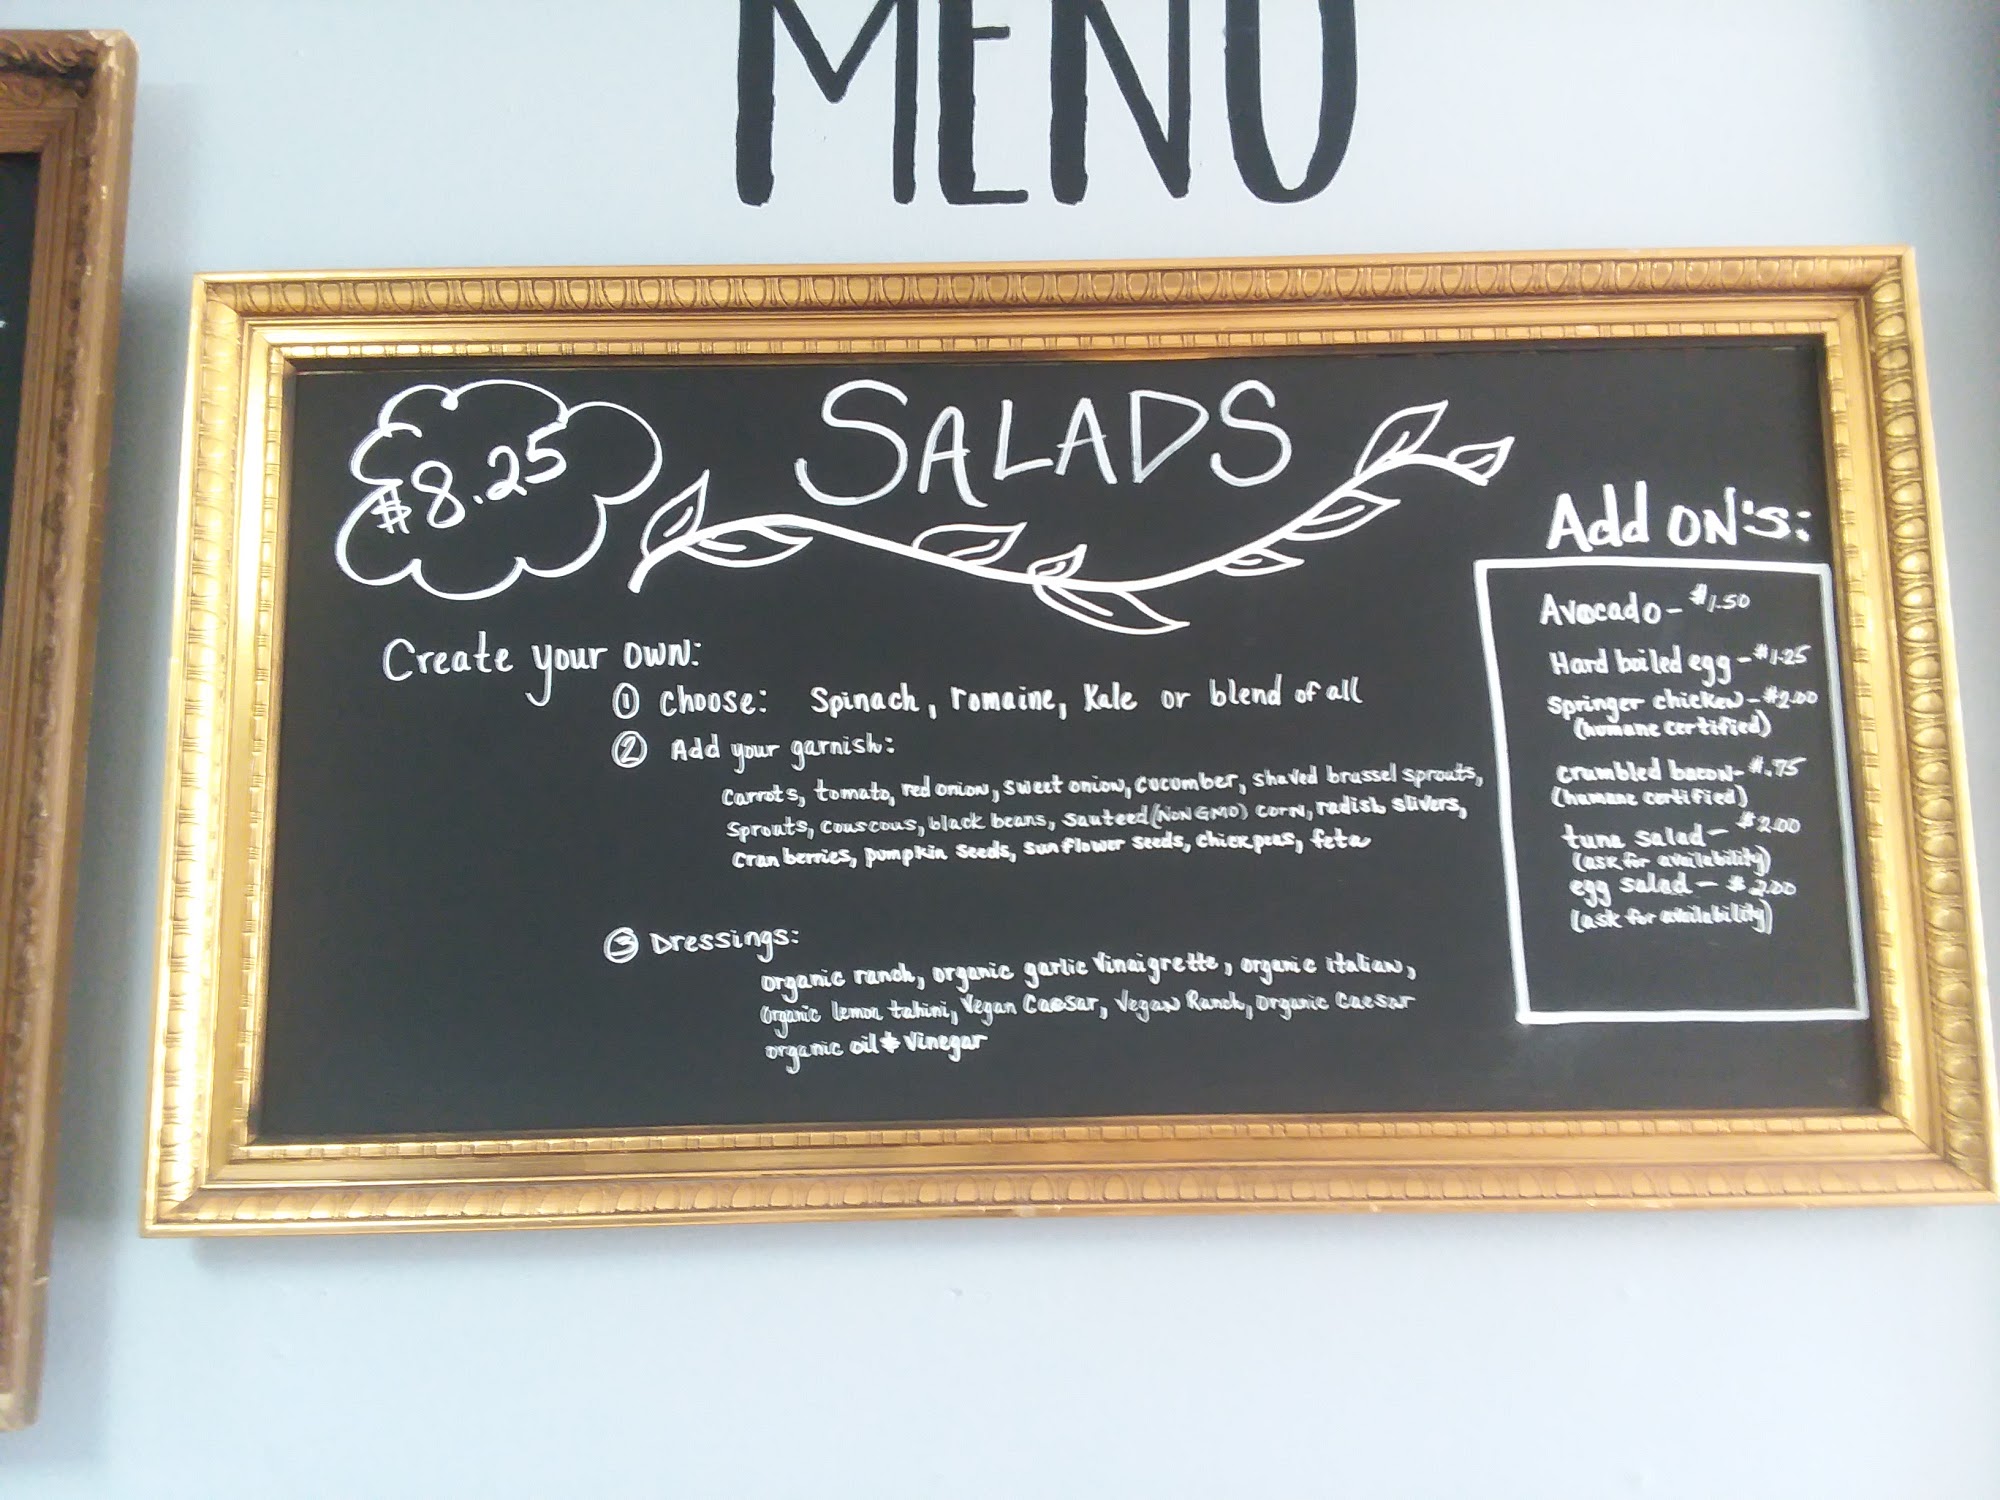 MENU
SALADS
$8.25
Create your own:
① Choose: Spinach, romaine, Kale or blend of all
② Add your garnish:
Carrots, tomato, red onion, sweet onion, cucumber, shaved brussel sprouts,
Sprouts, couscous, black beans, sauteed (NON GMO) corn, radish slivers,
Cranberries, pumpkin seeds, sunflower seeds, chickpeas, feta
③ Dressings:
organic ranch, organic garlic vinaigrette, organic italian,
Organic lemon tahini, Vegan Caesar, Vegan Ranch, Organic Caesar
organic oil & Vinegar
Add ON's:
Avocado - $1.50
Hard boiled egg - $1.25
Springer chicken - $2.00
(humane certified)
crumbled bacon - $.75
(humane certified)
tuna salad - $2.00
(ask for availability)
egg salad - $2.00
(ask for availability)